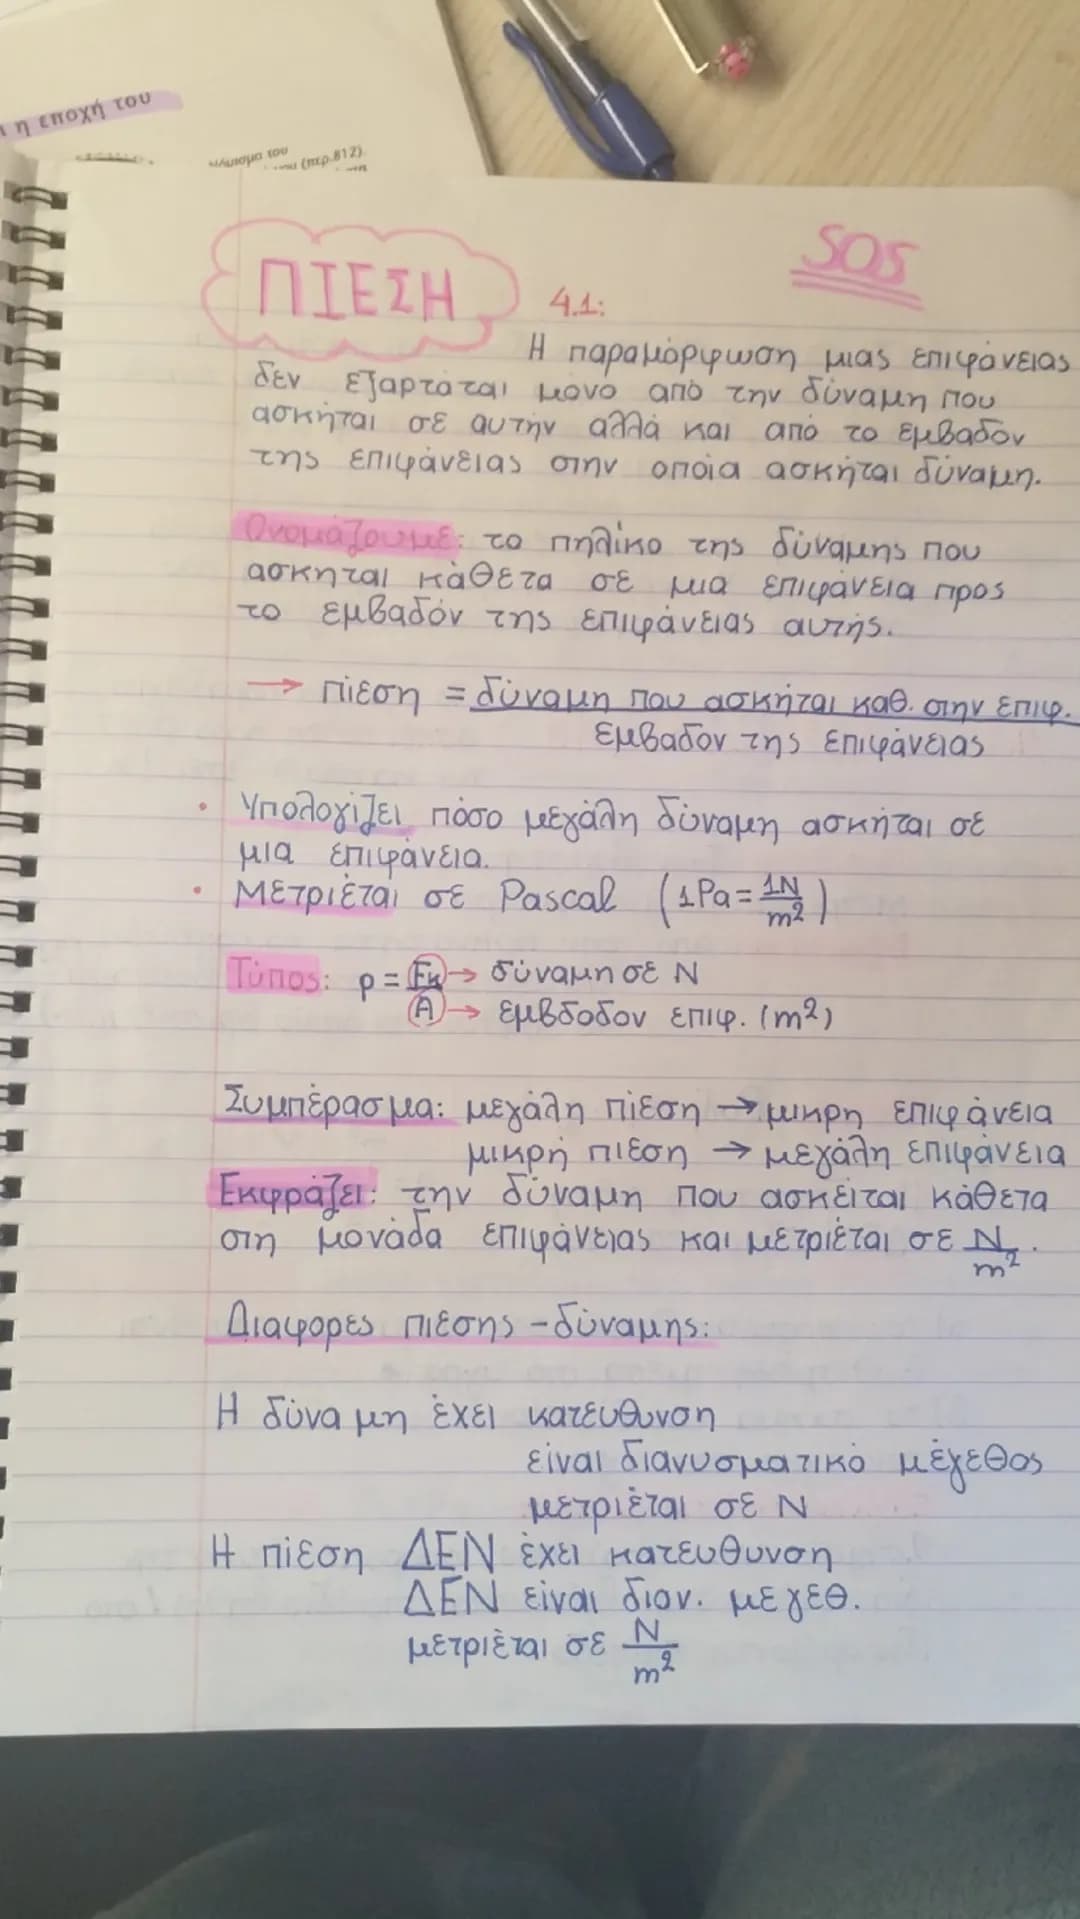 η εποχή του
(περ.812).
SOS
ΠΙΕΣΗ
4.1:
Η παραμόρφωση μιας επιφάνειας
δεν εξαρτάται μόνο από την δύναμη που
ασκήται σε αυτήν αλλά και από το εμβαδόν
της επιφάνειας στην οποία ασκήται δύναμη.
Ονομάζουμε: το πηλίκο της δύναμης που
ασκηται κάθετα σε μια επιφάνεια προς
το εμβαδόν της επιφάνειας αυτής.
→ πίεση = δύναμη που ασκήται καθ. στην επιφ.
εμβαδόν της επιφάνειας
• Υπολογίζει πόσο μεγάλη δύναμη ασκήται σε
μια επιφάνεια.
• Μετριέται σε Pascal (1Pa = 1N/m²)
Τύπος: p = Fκ → δύναμη σε N
A → εμβδοδον επιφ. (m²)
Συμπέρασμα: μεγάλη πίεση → μικρη επιφάνεια
μικρή πιεση → μεγάλη επιφάνεια
Εκφράζει: την δύναμη που ασκείται κάθετα
στη μονάδα επιφάνειας και μετριέται σε N/m².
Διαφορες πιεσης - δύναμης:
Η δύναμη έχει κατευθυνση
είναι διανυσματικό μέγεθος
μετριέται σε N
Η πίεση ΔΕΝ έχει κατευθυνση
ΔΕΝ είναι διαν. μεγεθ.
μετριέται σε N/m²